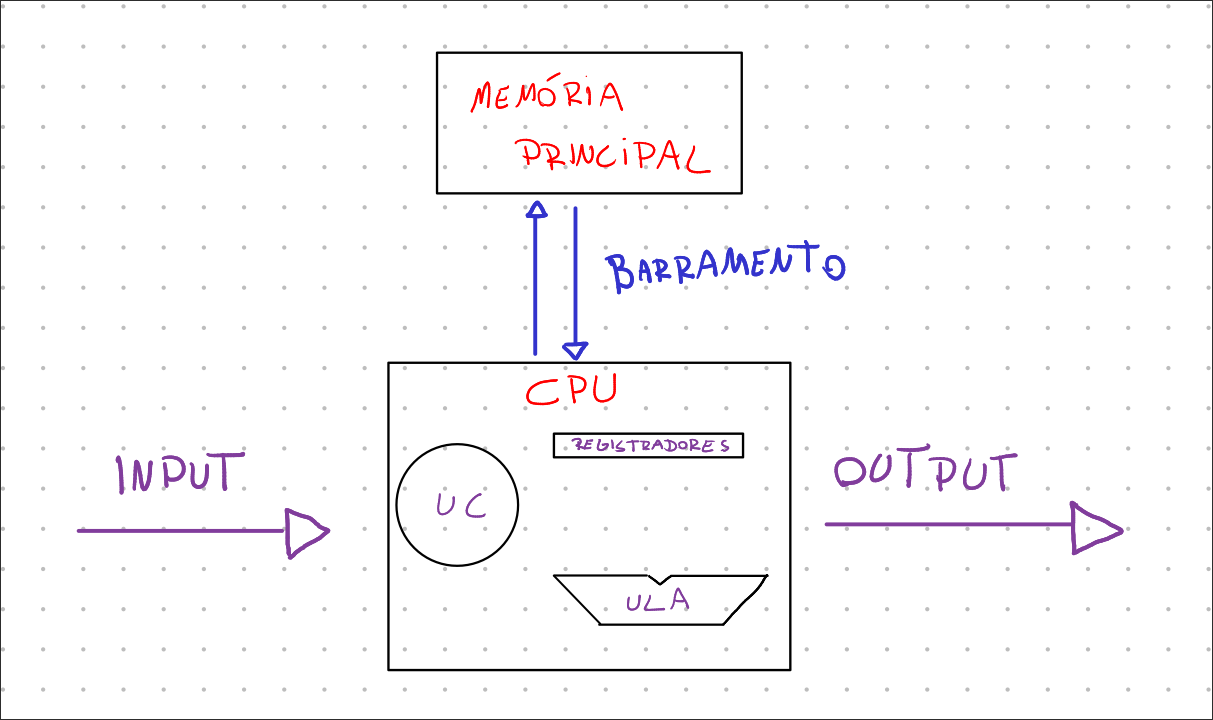 MEMÓRIA
PRINCIPAL
BARRAMENTO
CPU
REGISTRADORES
INPUT
UC
OUTPUT
ULA